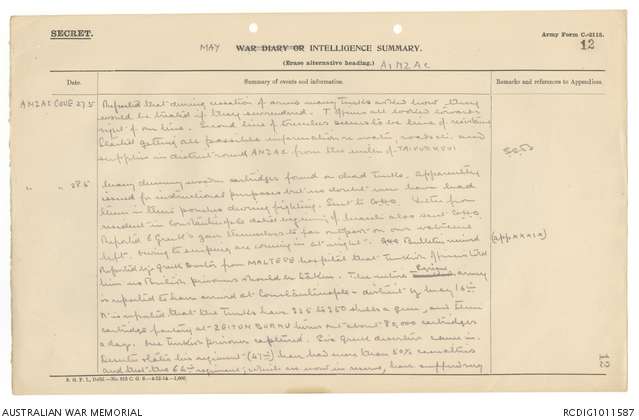 SECRET.
Army Form C.-2118.
12
MAY WAR DIARY OR INTELLIGENCE SUMMARY.
(Erase alternative heading.) ANZAC
Date.
Summary of events and information.
Remarks and references to Appendices.
ANZAC COVE 27/5
Reported that during cessation of arms many Turks asked how they
would be treated if they surrendered. T. officers all looked towards
right of our line. Second line of trenches seems to be line of resistance
Started getting all possible information re water, roads and
supplies in district round ANZAC from the
" " 28.5
Many dummy wooden cartridges found on dead Turks. Apparently
issued for instructional purposes but no doubt men have had
them in their pouches during fighting. Sent to GHQ. Letter from
resident in Constantinople also sent GHQ.
Reported 6 Greek's gave themselves to far outpost on our extreme
left. Owing to sniping are coming in at night. Bulletin issued
(appx XXIX)
Reported by Greek Doctor from MALTEPE hospital that Turkish officers told
him no British prisoners should be taken. The entire Syrian army
is reported to have arrived at Constantinople & district by May 16th
It is reported that the Turks have 225 to 250 shells a gun, and
cartridge factory at ZEITUN BURNU turns out about 80,000 cartridges
a day. One Turkish prisoner captured. Six Greek deserters came in.
Deserter states his regiment (47th) has had more than 50% casualties
and that the 64th regiment, which are now in reserve, has suffered
S. G. P. I., Delhi.
AUSTRALIAN WAR MEMORIAL
RCDIG1011587